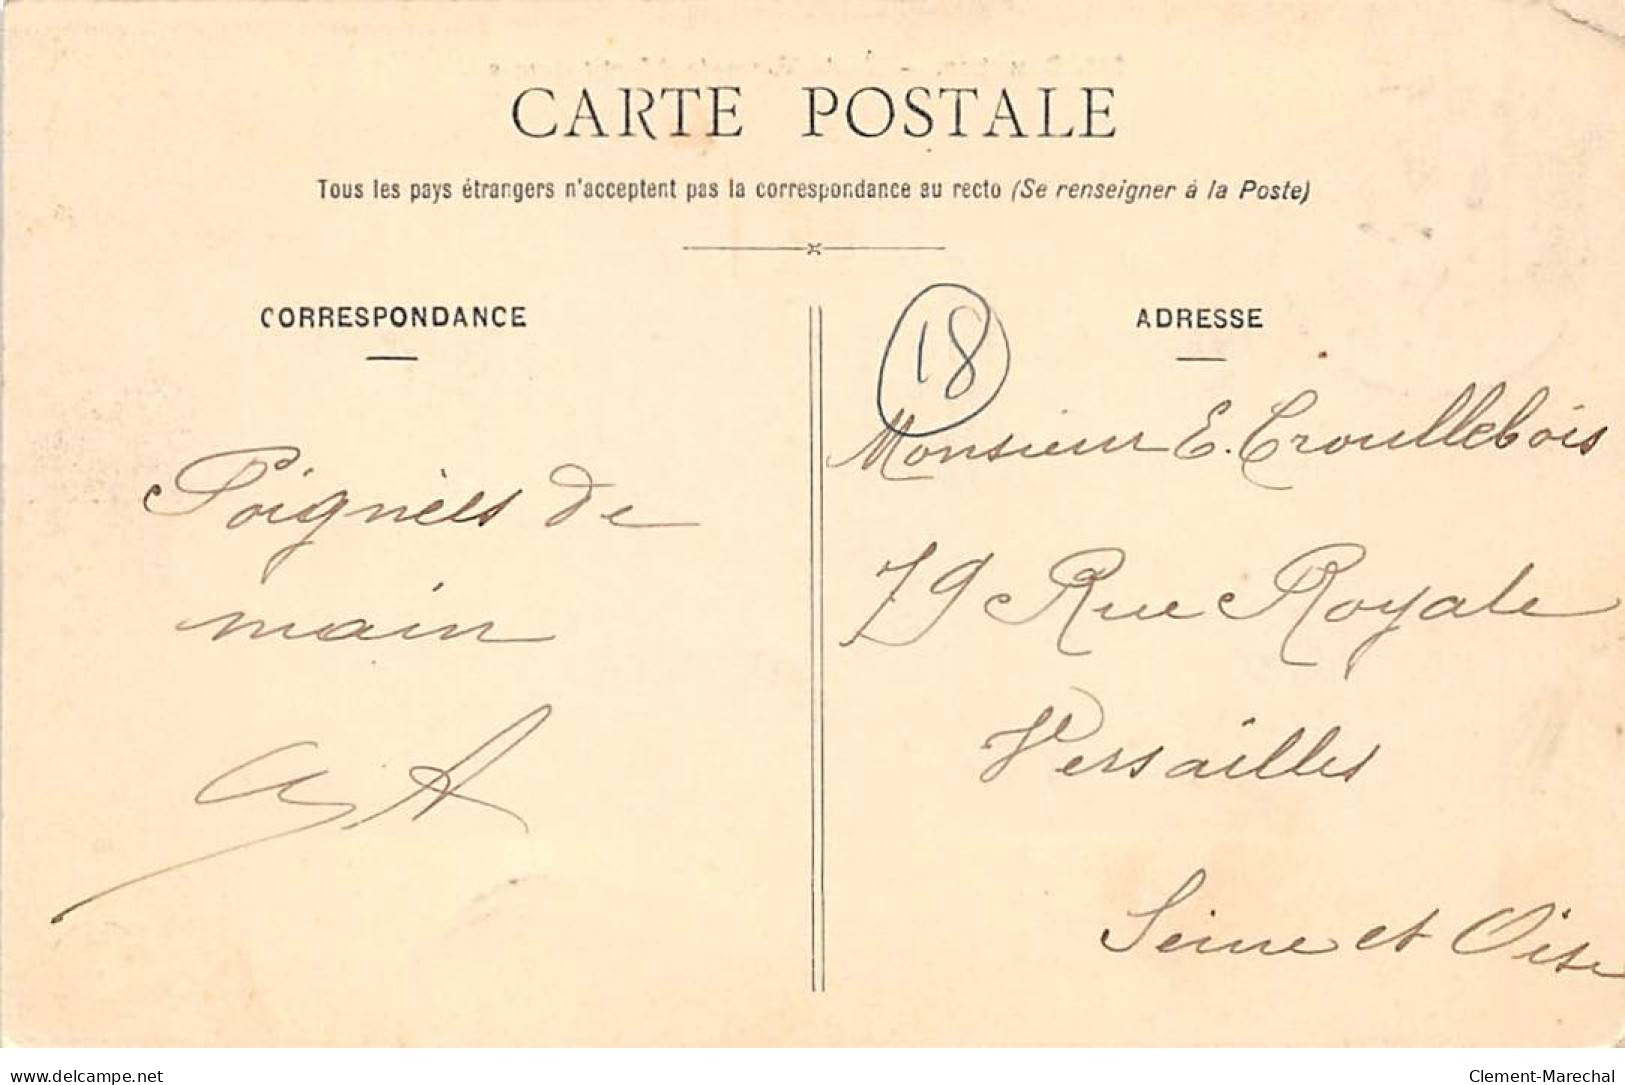 CARTE POSTALE
Tous les pays étrangers n'acceptent pas la correspondance au recto (Se renseigner à la Poste)
CORRESPONDANCE
Poignèes de
main
ADRESSE
18
Monsieur E. Croullebois
79 Rue Royale
Versailles
Seine et Oise
www.delcampe.net
Clement-Marechal